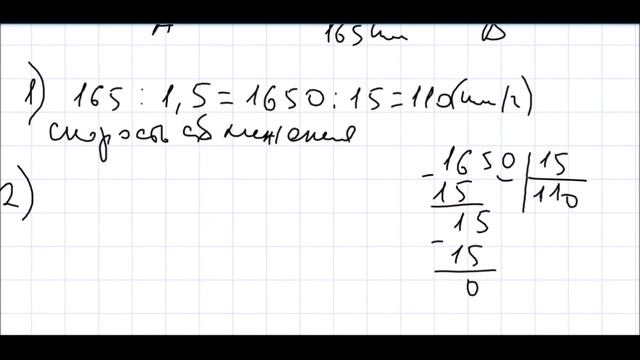 A 165 км B
1) 165 : 1,5 = 1650 : 15 = 110 (км/ч)
скорость сближения
2)
- 1650 | 15
15 110
15
- 15
0